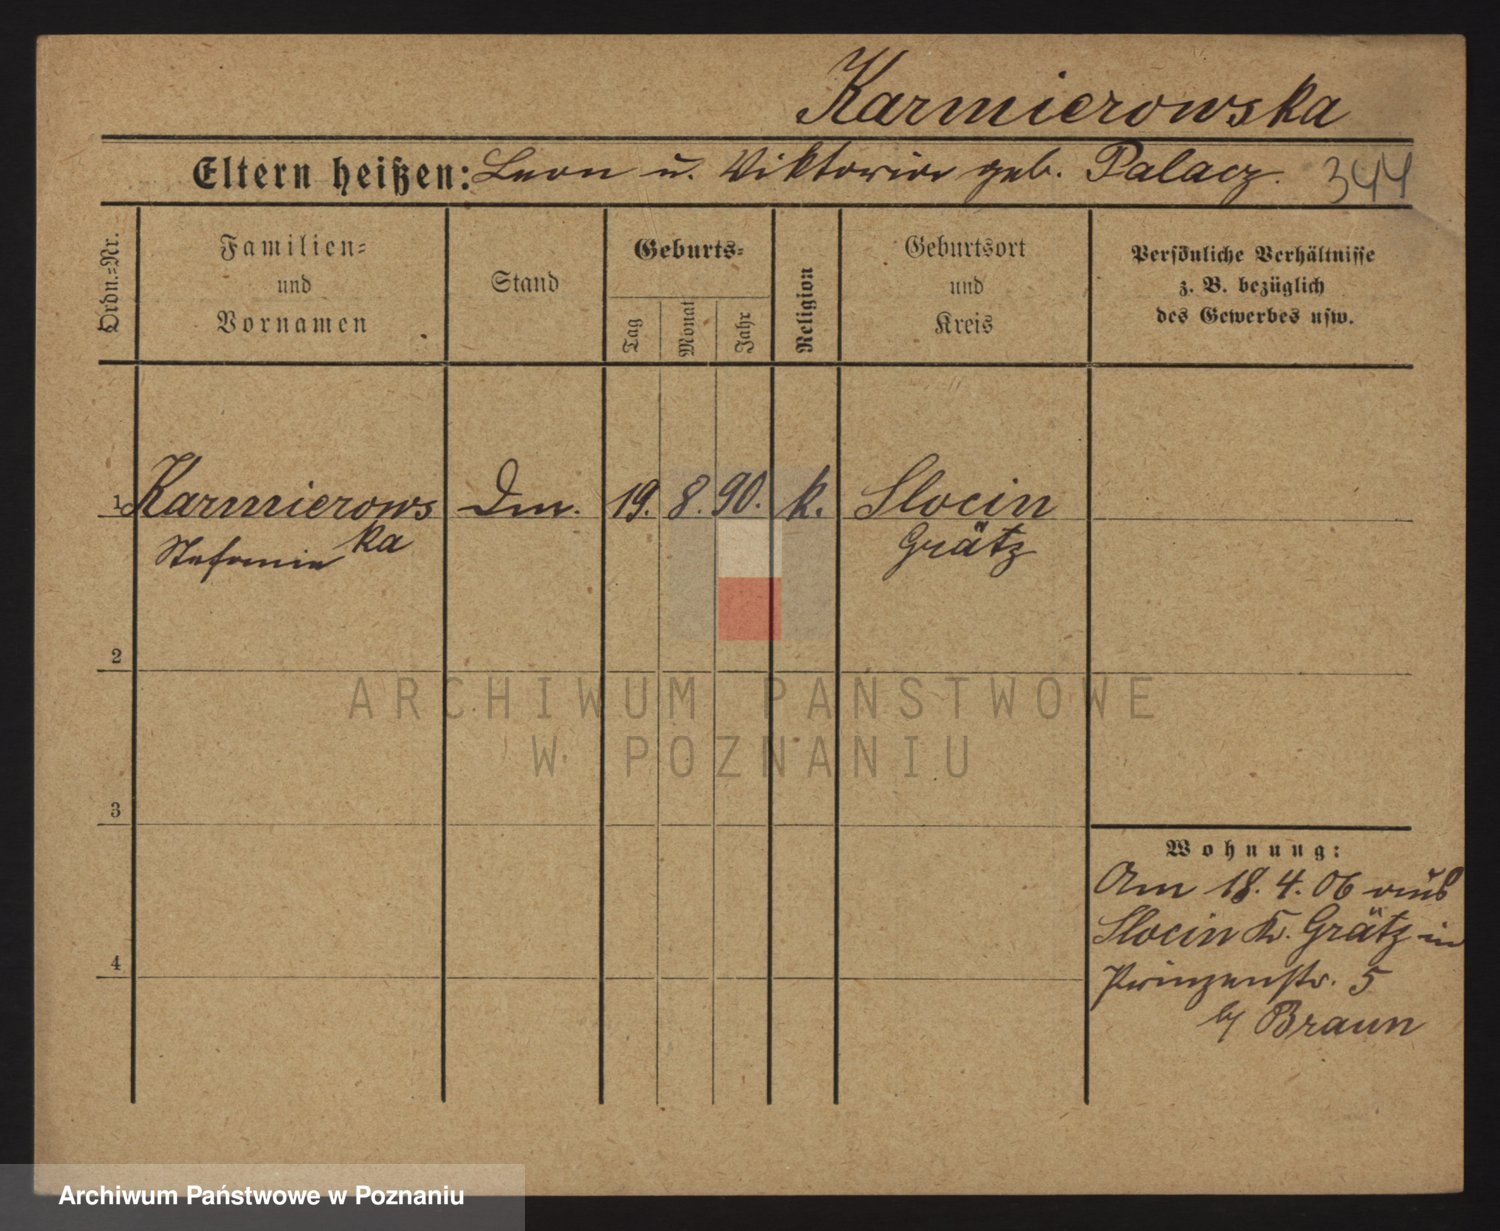 Karmierowska
Eltern heißen: Leon u. Viktoria geb. Palacz. 344
Ordn.=Nr.
Familien=
und
Vornamen
Stand
Geburts=
Tag
Monat
Jahr
Religion
Geburtsort
und
Kreis
Persönliche Verhältnisse
z. B. bezüglich
des Gewerbes usw.
1 Karmierows Dm. 19. 8. 90. k. Slocin
ka
Stefanie Grätz
2
ARCHIWUM PAŃSTWOWE
W POZNANIU
3
Wohnung:
Am 18. 4. 06 aus
Slocin Kr. Grätz in
4
Prinzenstr. 5
b/ Braun
Archiwum Państwowe w Poznaniu